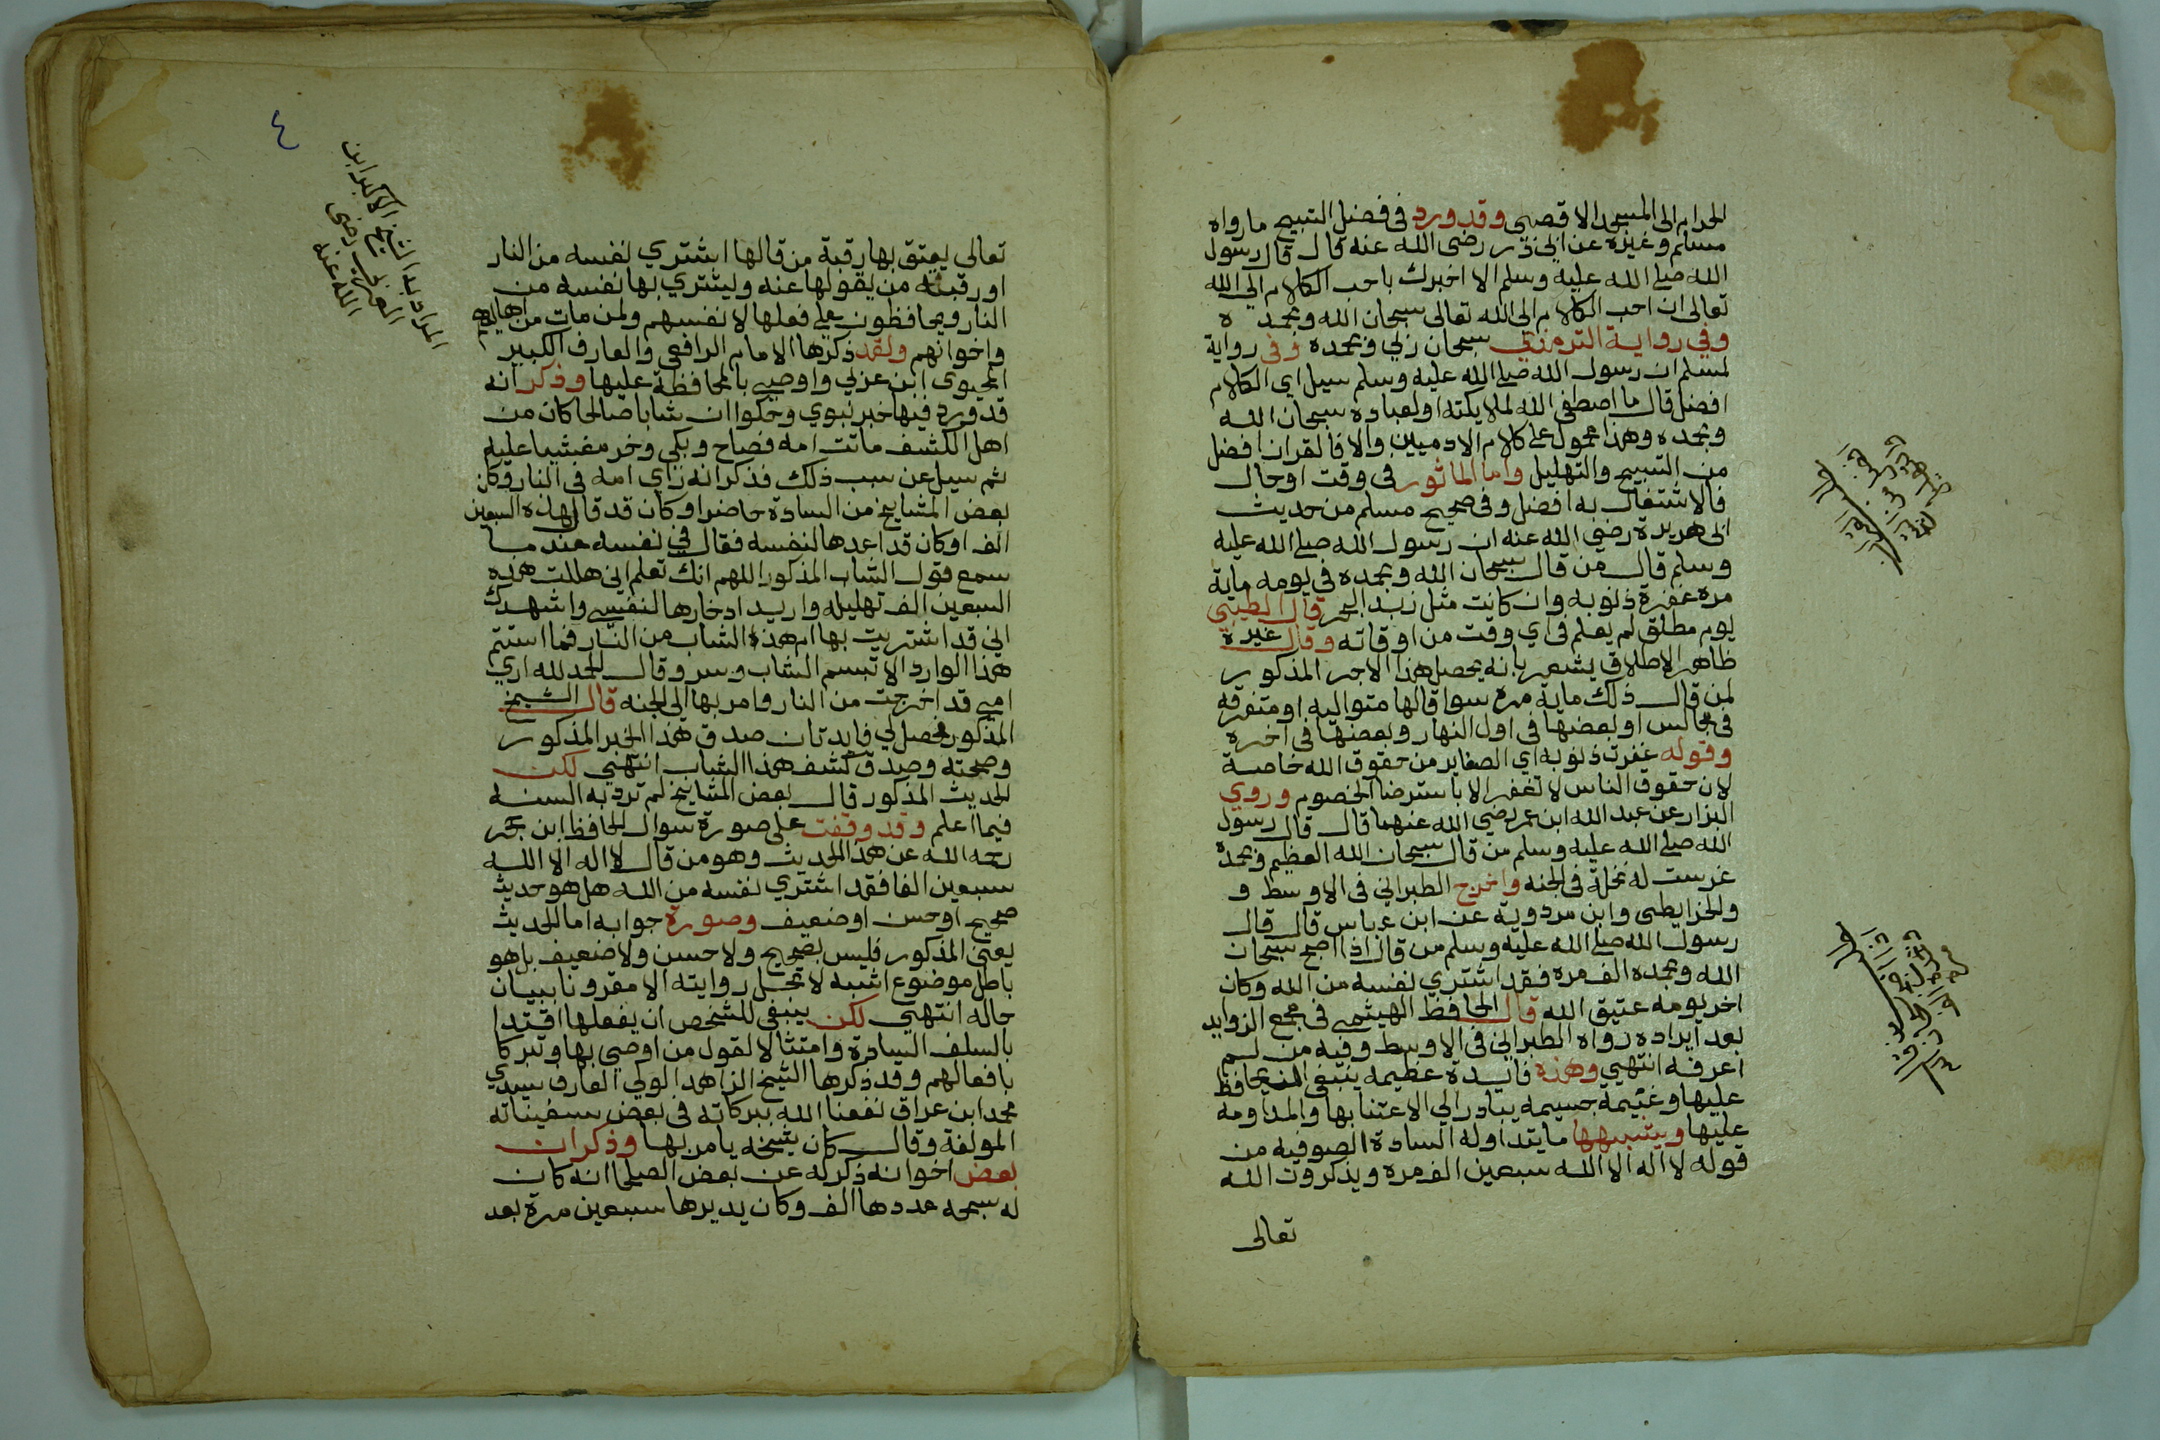 الحرام الى المسجد الاقصى وقد ورد في فضل التسبيح ما رواه
مسلم وغيره عن ابي ذر رضى الله عنه قال قال رسول
الله صلى الله عليه وسلم الا اخبرك باحب الكلام الى الله
تعالى ان احب الكلام الى الله تعالى سبحان الله وبحمده
وفي رواية الترمذي سبحان ربي وبحمده وفى رواية
لمسلم ان رسول الله صلى الله عليه وسلم سيل اي الكلام
افضل قال ما اصطفى الله لملايكته او لعباده سبحان الله
وبحمده وهذا محمول على كلام الادميين والا فالقران افضل
من التسبيح والتهليل واما الماثور فى وقت او حال
فالاشتغال به افضل وفى صحيح مسلم من حديث
ابى هريرة رضي الله عنه ان رسول الله صلى الله عليه
وسلم قال من قال سبحان الله وبحمده في يومه ماية
مره غفرة ذنوبه وان كانت مثل زبد البحر قال الطيبي
يوم مطلق لم يعلم فى اي وقت من اوقاته وقال غيره
ظاهر الاطلاق يشعر بانه يحصل هذا الاجر المذكور
لمن قال ذلك ماية مره سوا قالها متواليه او متفرقه
فى مجالس او بعضها فى اول النهار وبعضها فى اخره
وقوله غفرت ذنوبه اي الصغاير من حقوق الله خاصة
لان حقوق الناس لا تغفر الا باسترضا الخصوم وروي
البزار عن عبد الله ابن عمر رضي الله عنهما قال قال رسول
الله صلى الله عليه وسلم من قال سبحان الله العظيم وبحمده
غرست له نخلة فى الجنه واخرج الطبراني فى الاوسط و
والخرايطى وابن مردوية عن ابن عباس قال قال
رسول الله صلى الله عليه وسلم من قال اذا اصبح سبحان
الله وبحمده الف مرة فقد اشترى نفسه من الله وكان
اخر يومه عتيق الله قال الحافظ الهيثمي فى مجمع الزوايد
بعد ايراده رواه الطبراني فى الاوسط وفيه من لم
اعرفه انتهي وهذه فايدة عظيمه ينبغى ان يحافظ
عليها وغنيمة جسيمه يبادر الي الاعتنا بها والمداومه
عليها ويشبهها ما يتداوله السادة الصوفيه من
قوله لا اله الا الله سبعين الف مره ويذكروت الله
تعالى
٤
المراد به الشيخ الاكبر ابن
العربي رضى
الله عنه
تعالى يعتق بها رقبة من قالها اشترى نفسه من النار
او رقبته من يقولها عنه وليشتري بها نفسه من
النار ويحافظون على فعلها لانفسهم ولمن مات من اهاليهم
واخوانهم ولقد ذكرها الامام الرافعى والعارف الكبير
المحيوى ابن عربي واوصى بالمحافظة عليها وذكر انه
قد ورد فيها خبر نبوي وحكوا ان شابا صالحا كان من
اهل الكشف ماتت امه فصاح وبكى وخر مغشيا عليه
ثم سيل عن سبب ذلك فذكر انه راي امه فى النار وكان
بعض المشايخ من السادة حاضرا وكان قد قال هذه السبعين
الف اوكان قد اعدها لنفسه فقال في نفسه عند ما
سمع قول الشاب المذكور اللهم انك تعلم اني هللت هذه
السبعين الف تهليله واريد ادخارها لنفسي واشهدك
اني قد اشتريت بها ام هذه الشاب من النار فما استتم
هذا الوارد الا تبسم الشاب وسر وقال الحمد لله اري
امي قد اخرجت من النار وامر بها الى الجنه قال الشيخ
المذكور فحصل لي فايدتان صدق هذا الخبر المذكور
وصحته وصدق كشف هذا الشاب انتهي لكن
الحديث المذكور قال بعض المشايخ لم ترد به السنه
فيما اعلم وقد وقفت على صورة سوال للحافظ ابن حجر
رحمه الله عن هذا الحديث وهو من قال لا اله الا الله
سبعين الفا فقد اشتري نفسه من الله هل هو حديث
صحيح او حسن او ضعيف وصورة جوابه اما الحديث
يعني المذكور فليس بصحيح ولا حسن ولا ضعيف بل هو
باطل موضوع اشبه لا تحل روايته الا مقرونا ببيان
حاله انتهي لكن ينبغي للشخص ان يفعلها اقتدا
بالسلف السادة وامتثالا لقول من اوصى بها وتبركا
بافعالهم وقد ذكرها الشيخ الزاهد الولي العارف سيدي
محمد ابن عراق نفعنا الله ببركاته فى بعض سفيناته
المولفة وقال كان شيخه يامر بها وذكر ان
بعض اخوانه ذكر له عن بعض الصلحا انه كان
له سبحه عددها الف وكان يديرها سبعين مرة بعد